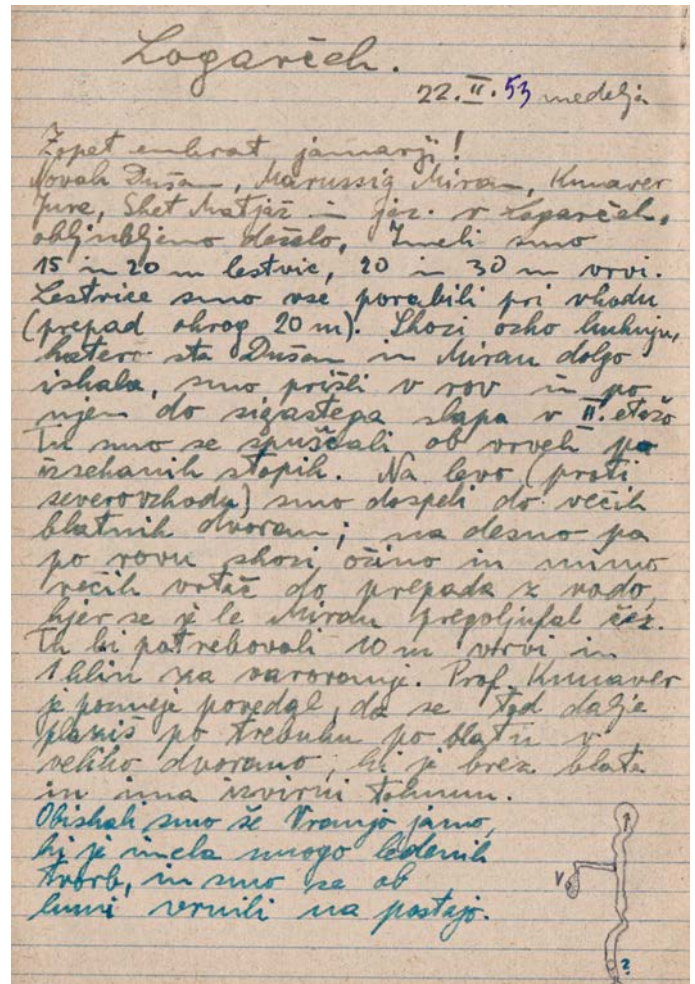 Logarček.
22.II.53 nedelja
Zopet enkrat jamarji!
Novak Dušan, Marussig Miran, Kunaver
Jure, Šket Matjaž in jaz. v Logarček,
obljubljeno deželo. Imeli smo
15 in 20 m lestvic, 20 in 30 m vrvi.
Lestvice smo vse porabili pri vhodu
(prepad okrog 20 m). Skozi ozko luknjo,
katero sta Dušan in Miran dolgo
iskala, smo prišli v rov in po
njem do sigastega slapa v II. etažo
Tu smo se spuščali ob vrveh po
izsekanih stopih. Na levo (proti
severovzhodu) smo dospeli do večih
blatnih dvoran; na desno pa
po rovu skozi ožino in mimo
večih vrtač do prepada z vodo,
kjer se je le Miran pregoljufal čez.
Tu bi potrebovali 10 m vrvi in
1 klin za varovanje. Prof. Kunaver
je pozneje povedal, da se tod dalje
plaziš po trebuhu po blatu v
veliko dvorano, ki je brez blata
in ima izvirni tolmun.
Obiskali smo še Vranjo jamo,
ki je imela mnogo ledenih
tvorb, in smo se ob
luni vrnili na postajo.
V
?